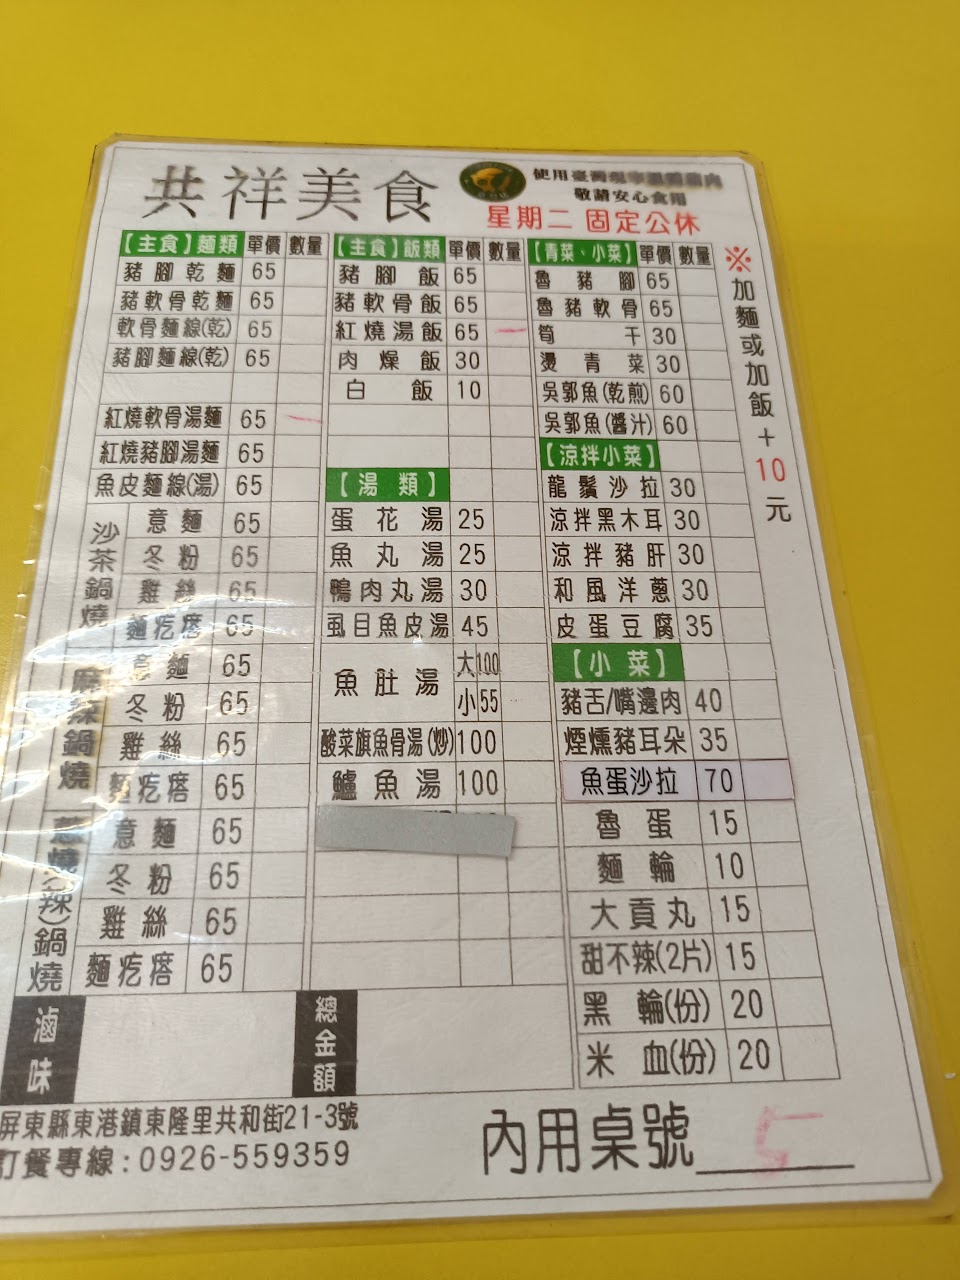 共祥美食
使用臺灣
敬請安心食用
星期二 固定公休
【主食】麵類 單價 數量
豬腳乾麵 65
豬軟骨乾麵 65
軟骨麵線(乾) 65
豬腳麵線(乾) 65
紅燒軟骨湯麵 65
紅燒豬腳湯麵 65
魚皮麵線(湯) 65
沙茶鍋燒
意麵 65
冬粉 65
雞絲 65
麵疙瘩 65
麻辣鍋燒
意麵 65
冬粉 65
雞絲 65
麵疙瘩 65
蔥燒(辣)鍋燒
意麵 65
冬粉 65
雞絲 65
麵疙瘩 65
【主食】飯類 單價 數量
豬腳飯 65
豬軟骨飯 65
紅燒湯飯 65
肉燥飯 30
白飯 10
【湯類】
蛋花湯 25
魚丸湯 25
鴨肉丸湯 30
虱目魚皮湯 45
魚肚湯 大100
小55
酸菜旗魚骨湯(炒) 100
鱸魚湯 100
【青菜、小菜】 單價 數量
魯豬腳 65
魯豬軟骨 65
筍干 30
燙青菜 30
吳郭魚(乾煎) 60
吳郭魚(醬汁) 60
【涼拌小菜】
龍鬚沙拉 30
涼拌黑木耳 30
涼拌豬肝 30
和風洋蔥 30
皮蛋豆腐 35
【小菜】
豬舌/嘴邊肉 40
煙燻豬耳朵 35
魚蛋沙拉 70
魯蛋 15
麵輪 10
大貢丸 15
甜不辣(2片) 15
黑輪(份) 20
米血(份) 20
※加麵或加飯+10元
滷味
總金額
屏東縣東港鎮東隆里共和街21-3號
訂餐專線:0926-559359
內用桌號 5